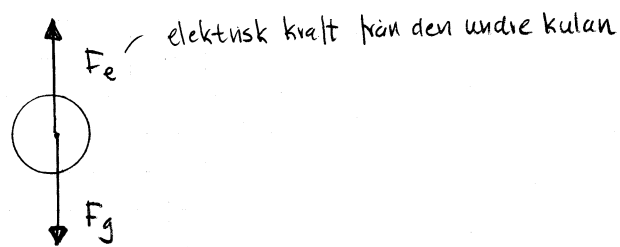 elektrisk kraft från den undre kulan
Fe
Fg